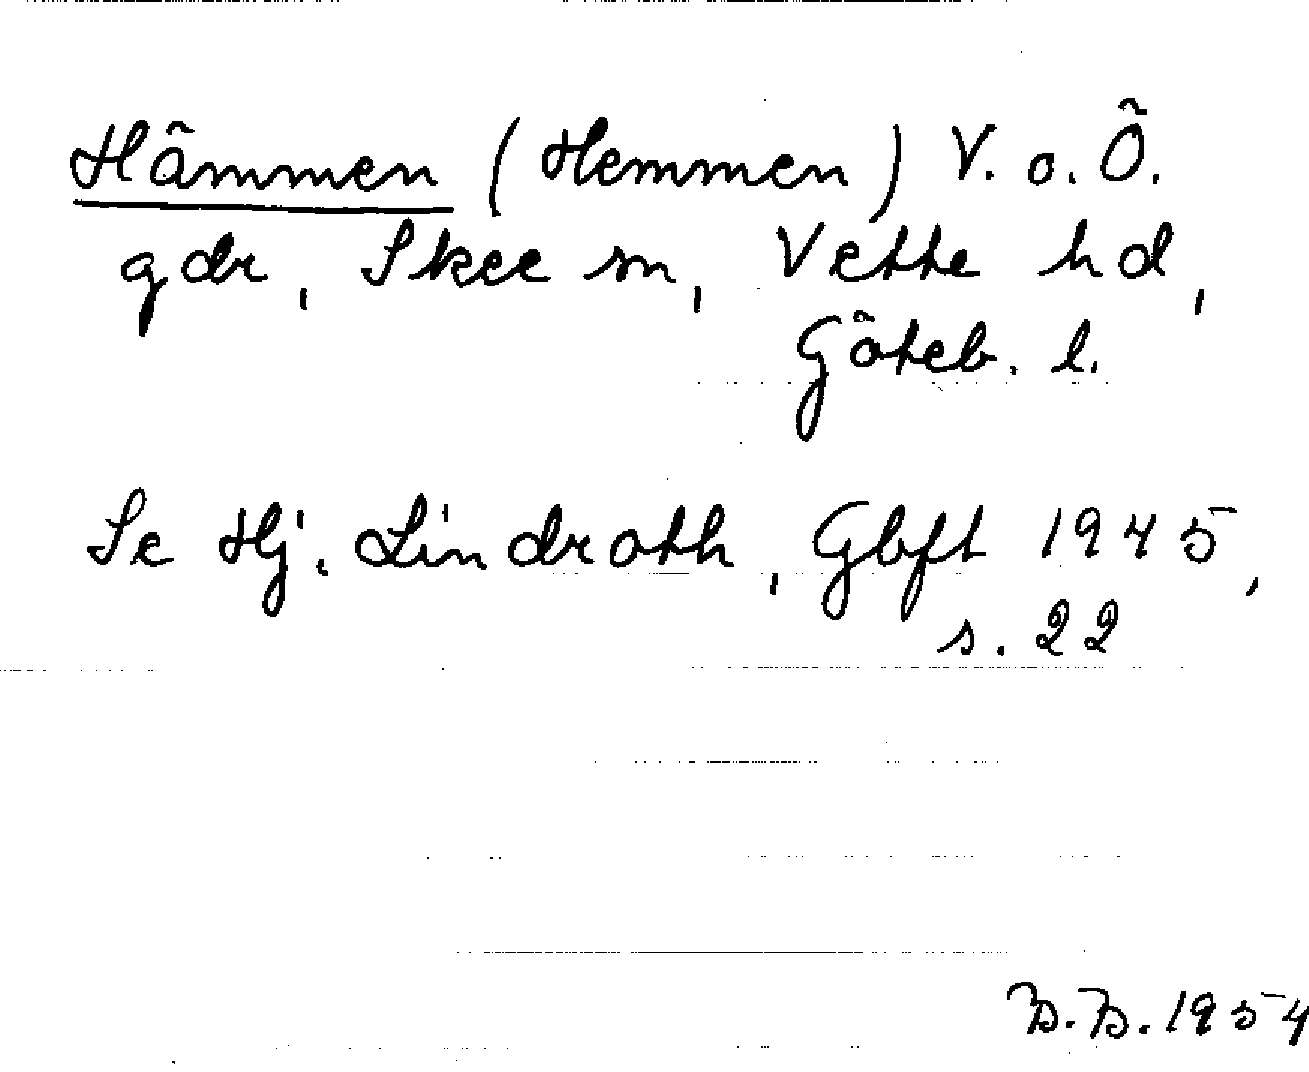 Hämmen (Hemmen) V. o. Ö.
gdr, Skee sn, Vette hd,
Göteb. l.
Se Hj. Lindroth, Gbft 1945,
s. 22
B.B. 1954